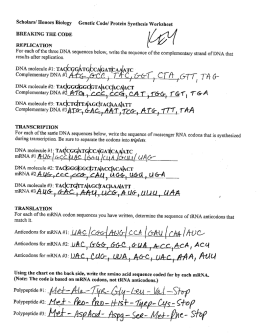 Scholars' Honors Biology Genetic Code/ Protein Synthesis Worksheet
KEY
BREAKING THE CODE
REPLICATION
For each of the three DNA sequences below, write the sequence of the complementary strand of DNA that
results after replication.
DNA molecule #1:
Complementary DNA #1 ATG, GCC, TAC, GGT, CTA, GTT, TAG
DNA molecule #2:
Complementary DNA #2 ATG, CCC, CCG, CAT, TGG, TGT, TGA
DNA molecule #3:
Complementary DNA #3 ATG, GAC, AAT, TCG, ATG, TTT, TAA
TRANSCRIPTION
For each of the same DNA sequences below, write the sequence of messenger RNA codons that is synthesized
during transcription. Be sure to separate the codons into triplets.
DNA molecule #1:
mRNA #1
DNA molecule #2:
mRNA #2 AUG, CCC, CCG, CAU, UGG, UGU, UGA
DNA molecule #3:
mRNA #3 AUG, GAC, AAU, UCG, AUG, UUU, UAA
TRANSLATION
For each of the mRNA codon sequences you have written, determine the sequence of tRNA anticodons that
match it.
Anticodons for mRNA #1:
Anticodons for mRNA #2: UAC, GGG, GGC, GUA, ACC, ACA, ACU
Anticodons for mRNA #3: UAC, CUG, UUA, AGC, UAC, AAA, AUU
Using the chart on the back side, write the amino acid sequence coded for by each mRNA.
(Note: The code is based on mRNA codons, not tRNA anticodons.)
Polypeptide #1: Met-Ala-Tyr-Gly-Leu-Val-Stop
Polypeptide #2: Met-Pro-Pro-Hist-Trp-Cys-Stop
Polypeptide #3: Met-AspAcid-Aspg-Ser-Met-Phe-Stop